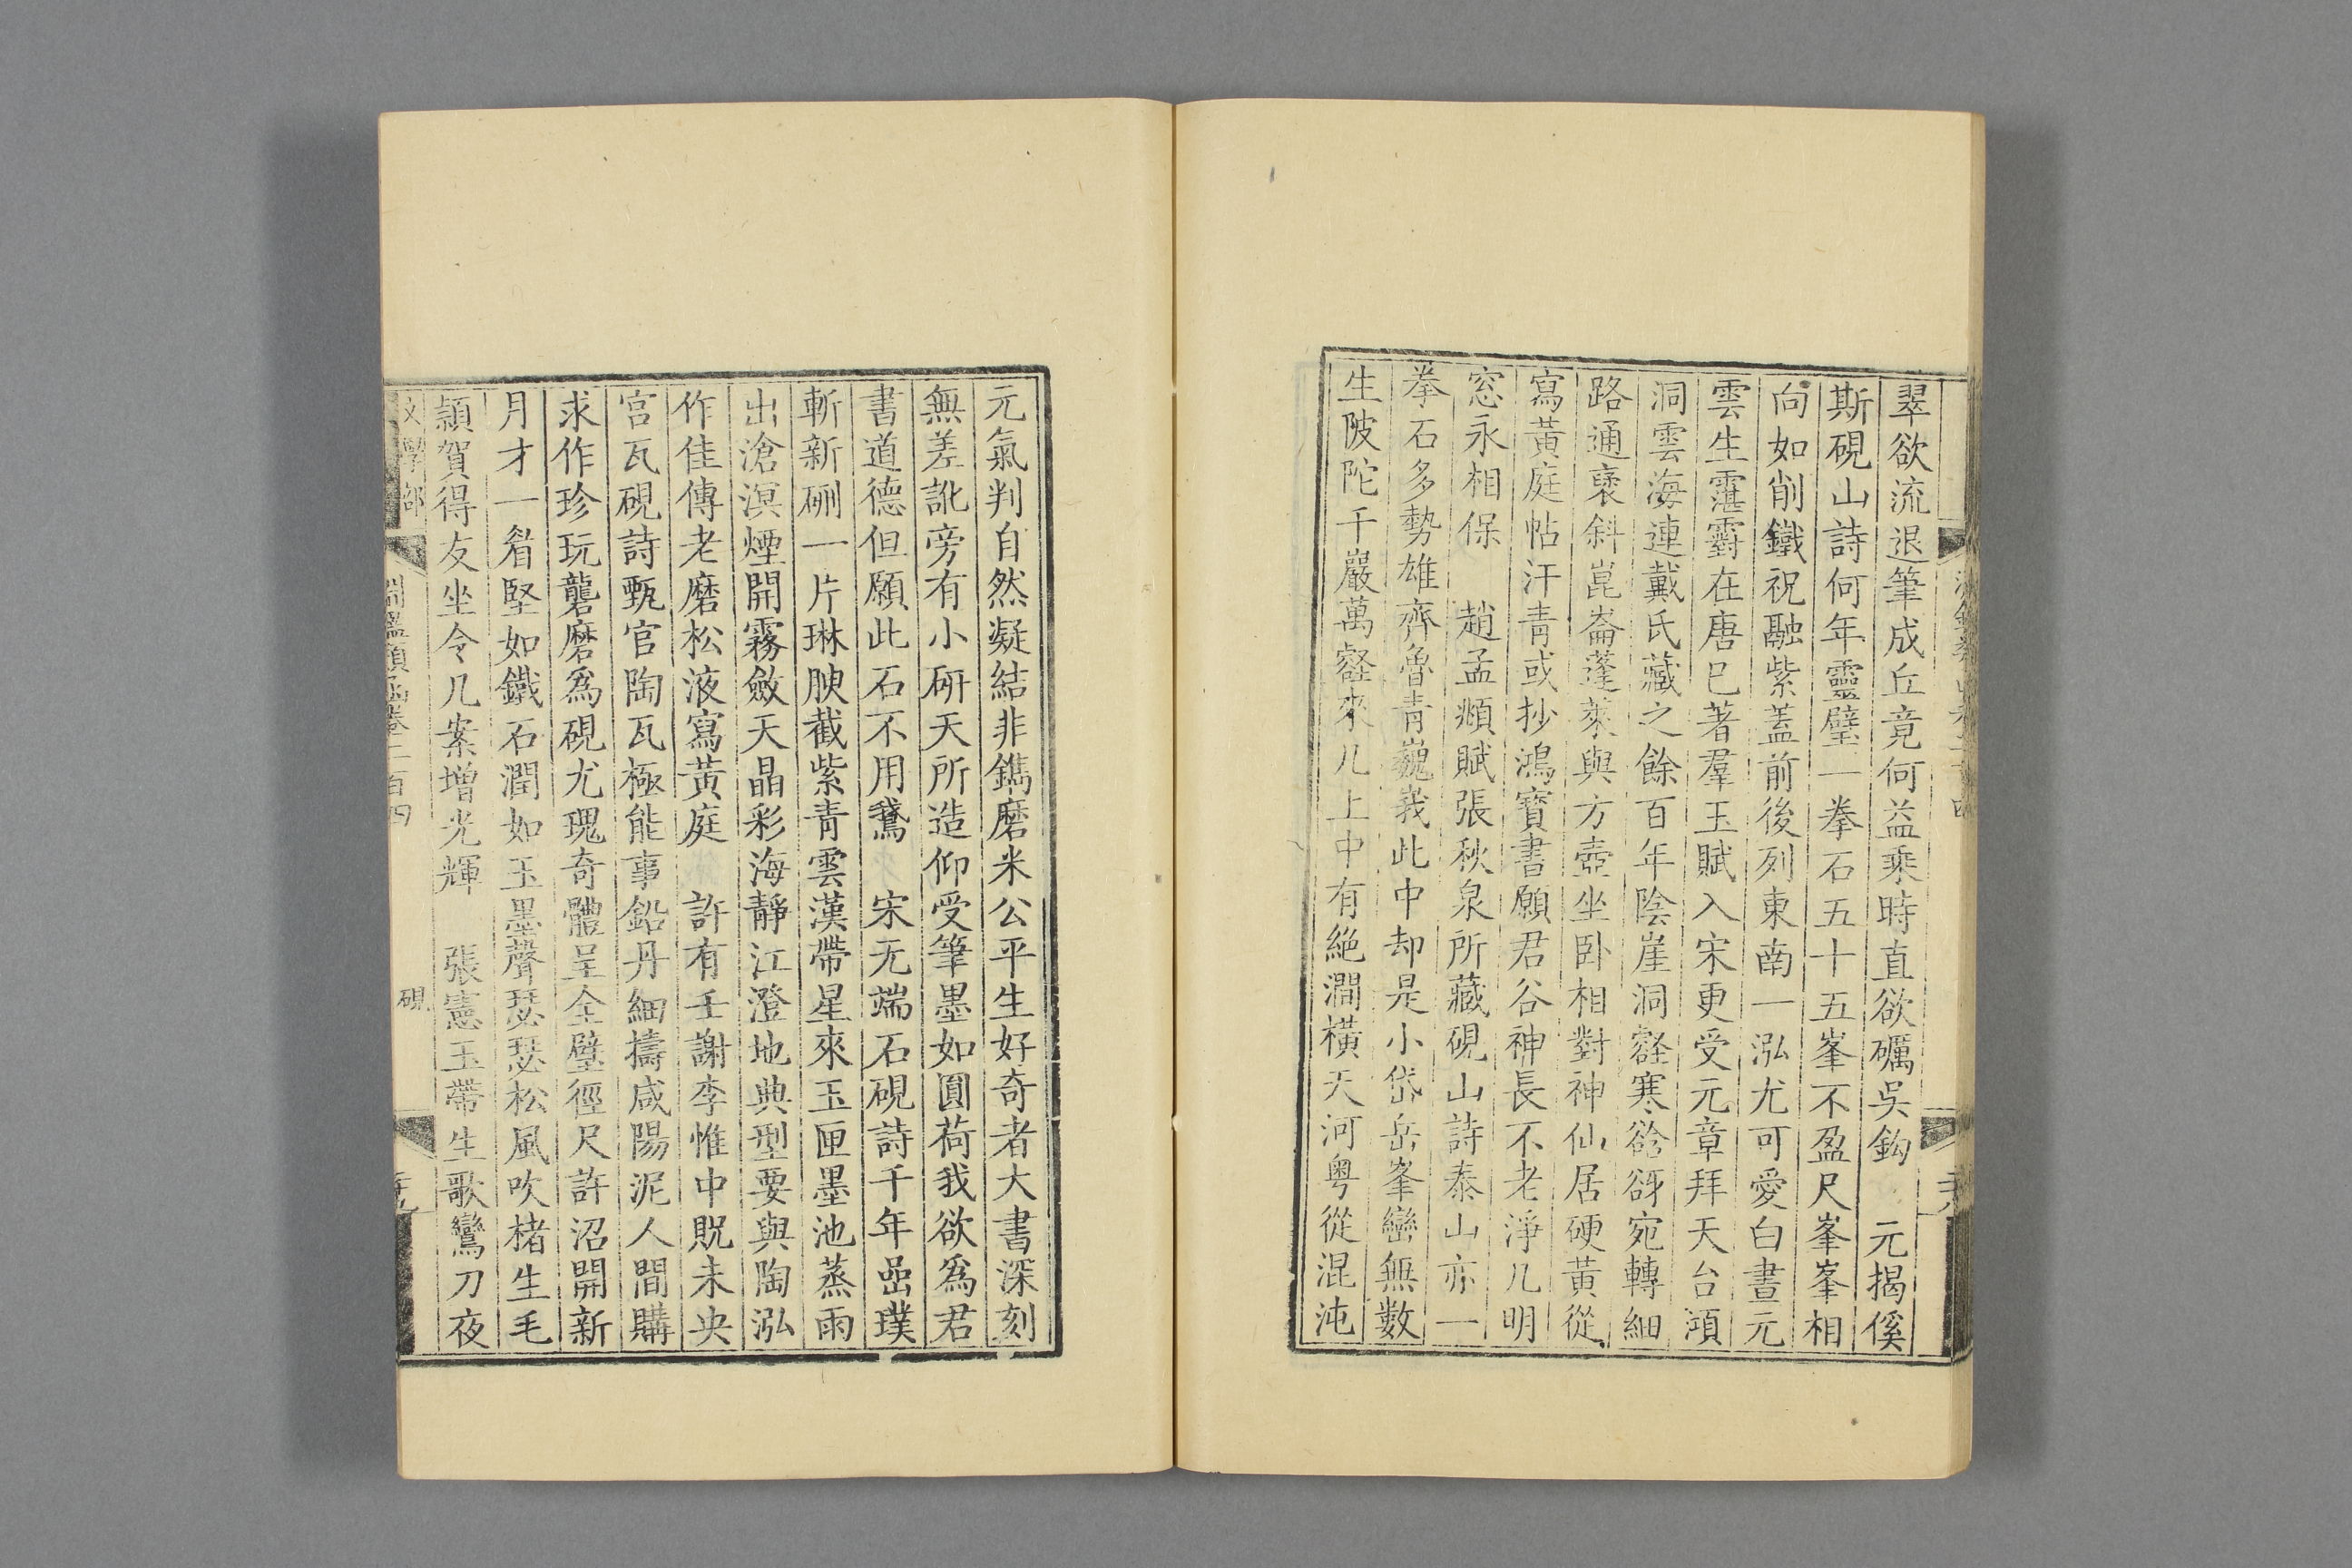 翠欲流退筆成丘竟何益乘時直欲礪吳鈎　元揭傒
斯硯山詩何年靈璧一拳石五十五峯不盈尺峯峯相
向如削鐵祝融紫蓋前後列東南一泓尤可愛白晝元
雲生霮䨴在唐已著羣玉賦入宋更受元章拜天台澒
洞雲海連戴氏藏之餘百年陰崖洞壑寒谽谺宛轉細
路通褒斜崑崙蓬萊與方壺坐卧相對神仙居硬黃從
寫黃庭帖汗青或抄鴻寶書願君谷神長不老淨几明
窓永相保　趙孟頫賦張秋泉所藏硯山詩泰山亦一
拳石多勢雄齊魯青巍峩此中却是小岱岳峯巒無數
生陂陀千巖萬壑來几上中有絶澗橫天河粤從混沌
元氣判自然凝結非鐫磨米公平生好奇者大書深刻
無差訛旁有小研天所造仰受筆墨如圓荷我欲爲君
書道德但願此石不用鵞　宋无端石硯詩千年嵒璞
斬新硎一片琳腴截紫青雲漢帶星來玉匣墨池蒸雨
出滄溟煙開霧斂天晶彩海靜江澄地典型要與陶泓
作佳傳老磨松液寫黃庭　許有壬謝李惟中貺未央
宫瓦硯詩甄官陶瓦極能事鉛丹細擣咸陽泥人間購
求作珍玩礱磨爲硯尤瑰奇體呈全璧徑尺許沼開新
月才一眉堅如鐵石潤如玉墨聲瑟瑟松風吹楮生毛
穎賀得友坐令几案增光輝　張憲玉帶生歌鸞刀夜
文學部
淵鑑類函卷二百四
硯